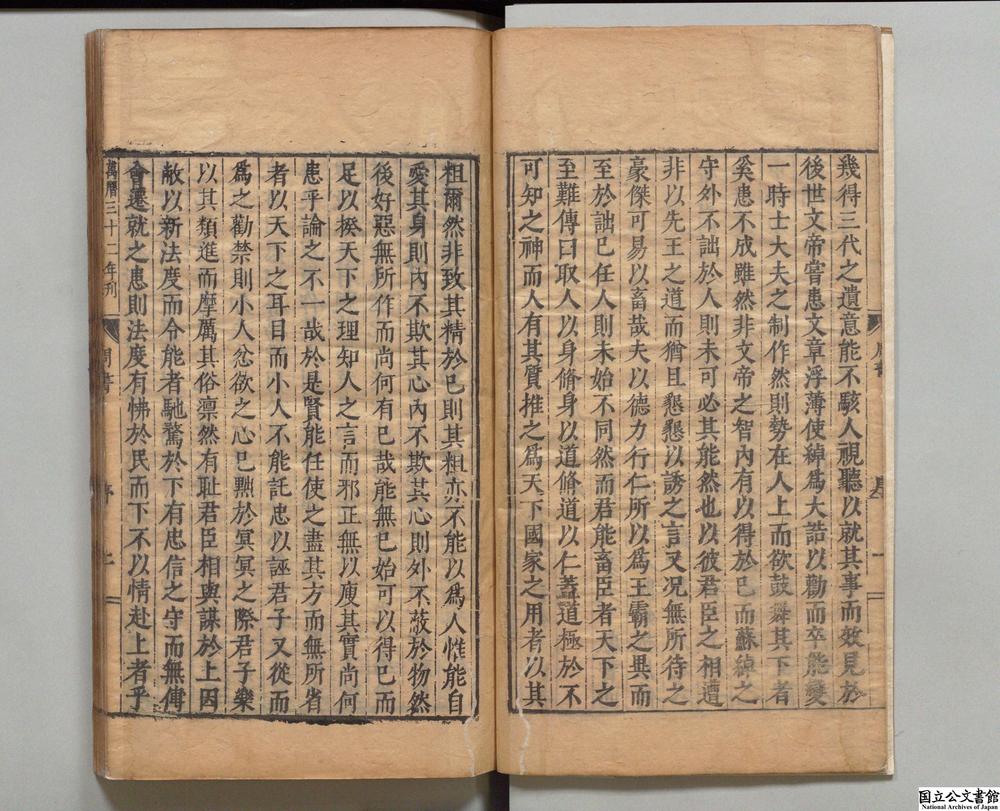 幾得三代之遺意能不駭人視聽以就其事而效見於
後世文帝嘗患文章浮薄使綽爲大誥以勸而卒能變
一時士大夫之制作然則勢在人上而欲鼓舞其下者
奚患不成雖然非文帝之智內有以得於已而蘇綽之
守外不詘於人則未可必其能然也以彼君臣之相遭
非以先王之道而猶且懇懇以誘之言又况無所待之
豪傑可易以畜哉夫以德力行仁所以爲王霸之異而
至於詘已任人則未始不同然而君能畜臣者天下之
至難傳曰取人以身脩身以道脩道以仁蓋道極於不
可知之神而人有其質推之爲天下國家之用者以其
粗爾然非致其精於已則其粗亦不能以爲人惟能自
愛其身則內不欺其心內不欺其心則外不蔽於物然
後好惡無所作而尚何有已哉能無已始可以得已而
足以揆天下之理知人之言而邪正無以廋其實尚何
患乎論之不一哉於是賢能任使之盡其方而無所省
者以天下之耳目而小人不能託忠以誣君子又從而
爲之勸禁則小人忿欲之心已黜於冥冥之際君子樂
以其類進而摩厲其俗凛然有耻君臣相與謀於上因
敝以新法度而令能者馳騖於下有忠信之守而無傅
會遷就之患則法度有怫於民而下不以情赴上者乎
萬曆三十二年刋
周書
序
七
国立公文書館
National Archives of Japan